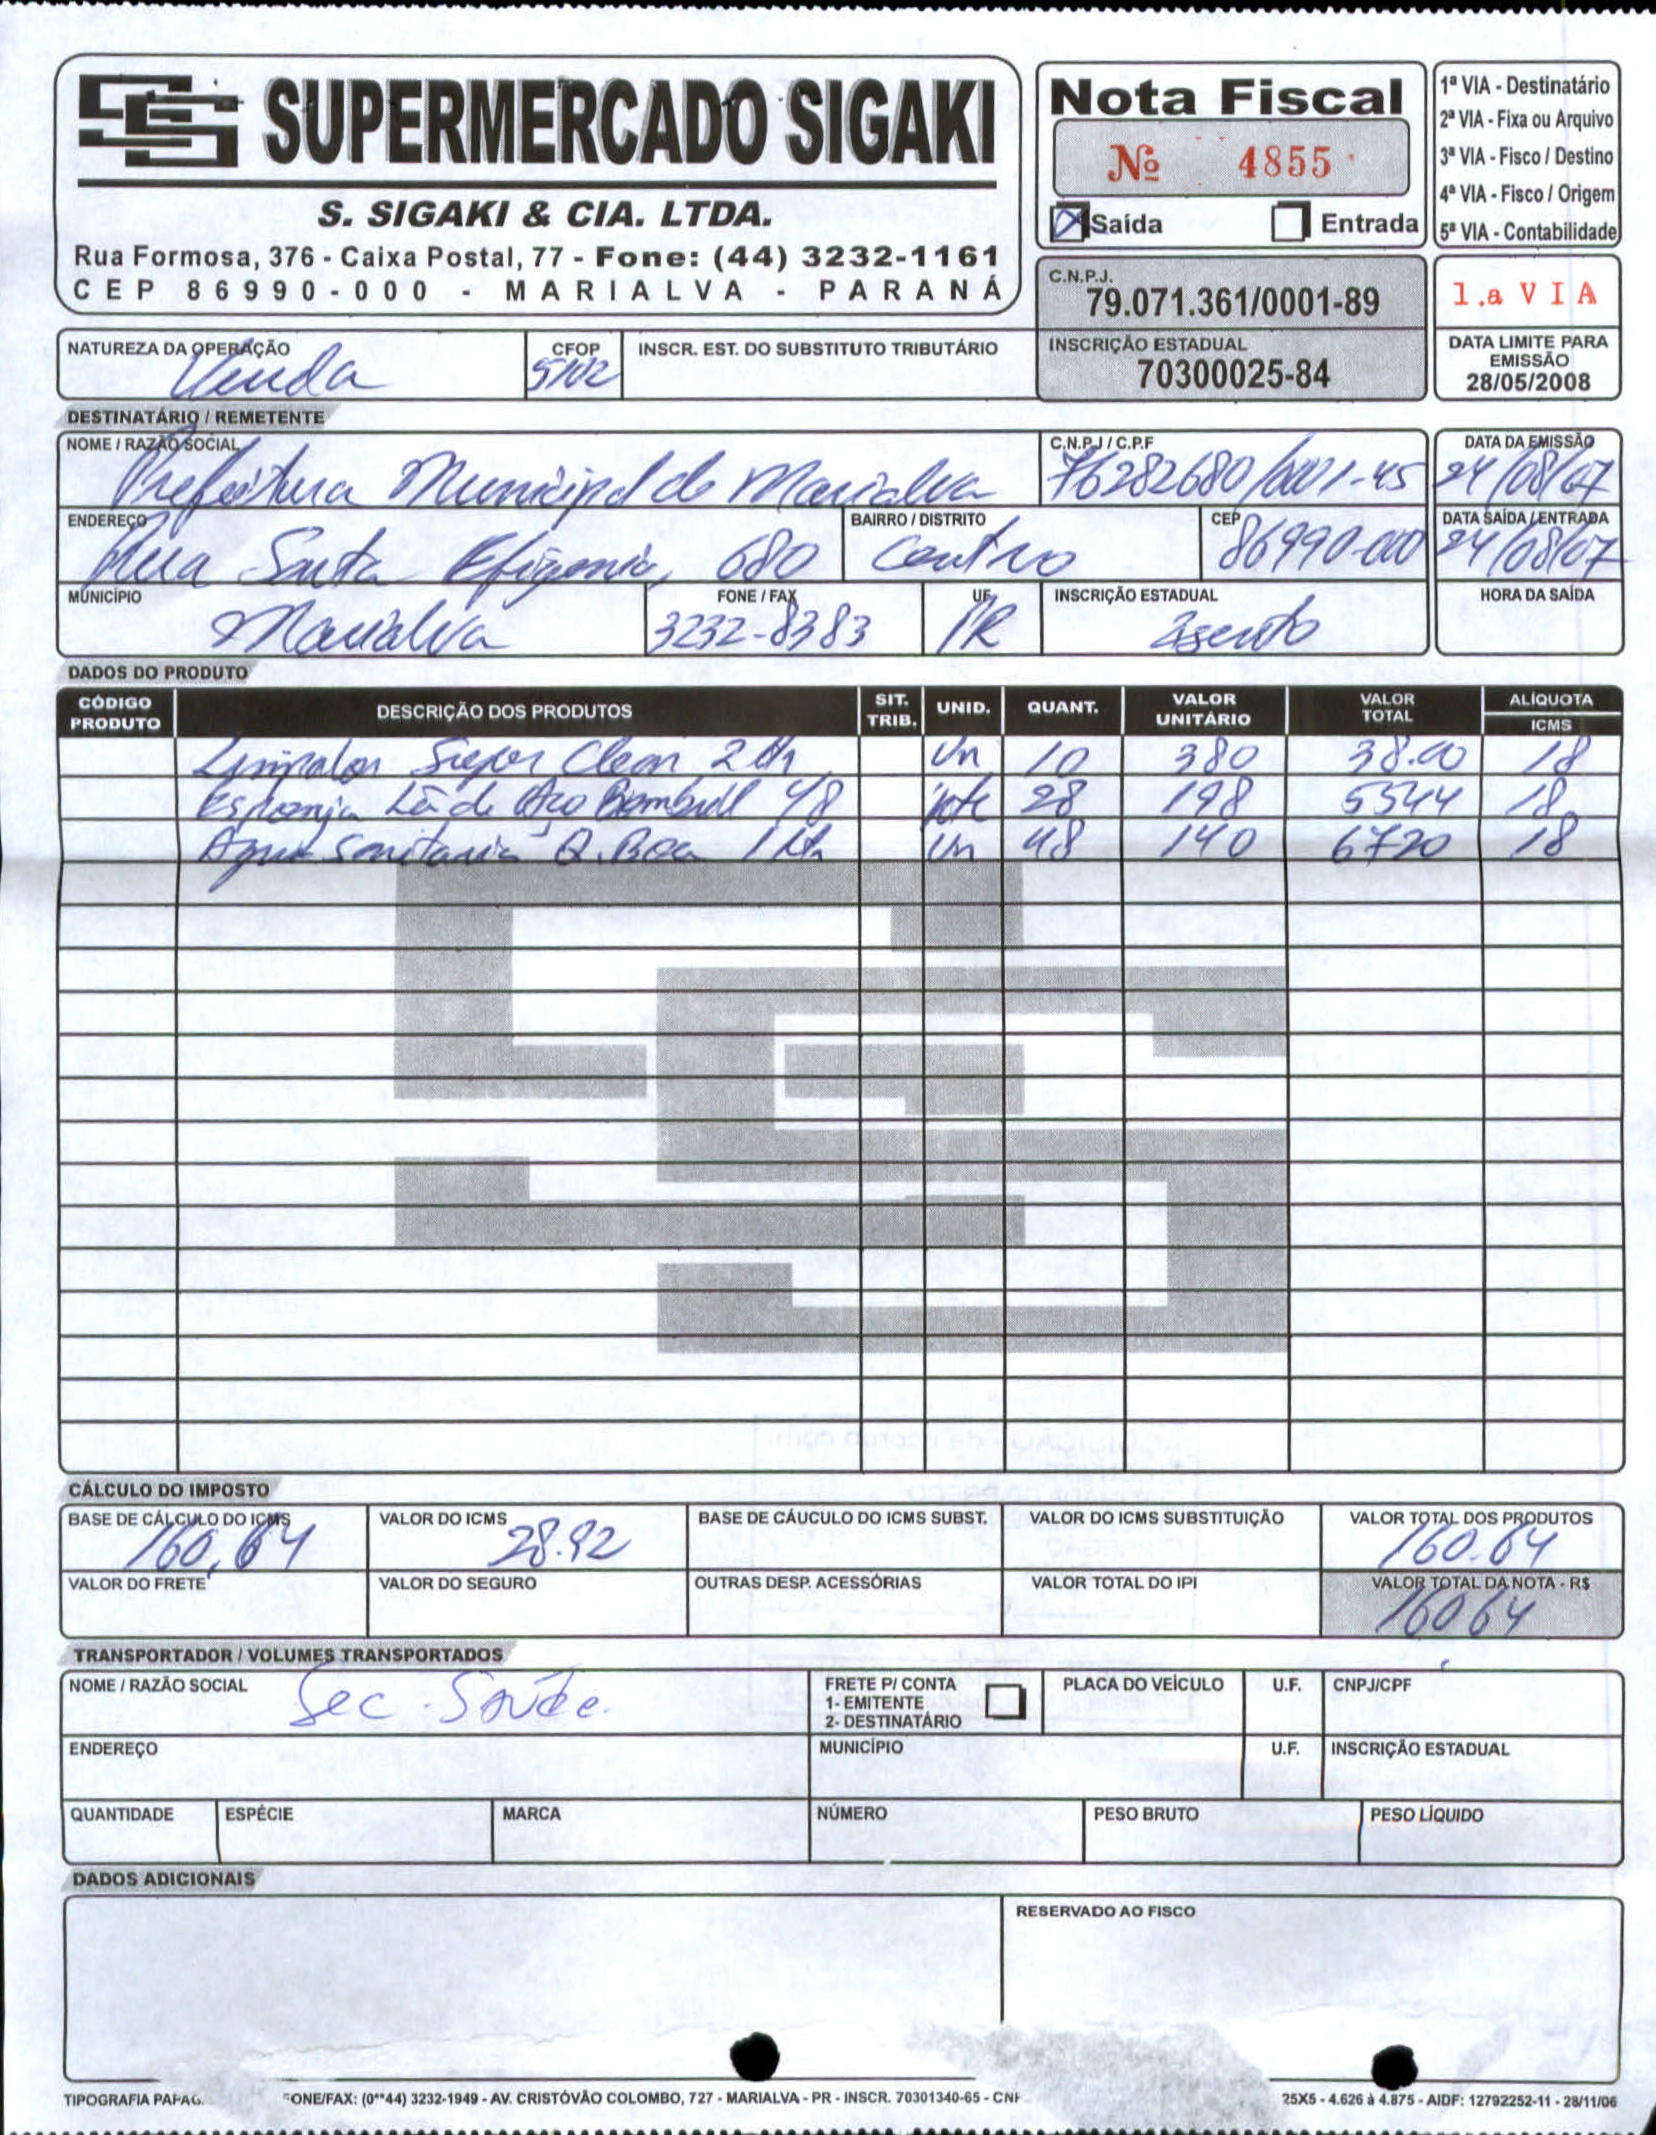 SUPERMERCADO SIGAKI
S. SIGAKI & CIA. LTDA.
Rua Formosa, 376 - Caixa Postal, 77 - Fone: (44) 3232-1161
CEP 86990-000 - MARIALVA - PARANÁ
Nota Fiscal
Nº 4855
Saída Entrada
1ª VIA - Destinatário
2ª VIA - Fixa ou Arquivo
3ª VIA - Fisco / Destino
4ª VIA - Fisco / Origem
5ª VIA - Contabilidade
C.N.P.J.
79.071.361/0001-89
1.a VIA
NATUREZA DA OPERAÇÃO CFOP INSCR. EST. DO SUBSTITUTO TRIBUTÁRIO
Venda 5102
INSCRIÇÃO ESTADUAL
70300025-84
DATA LIMITE PARA
EMISSÃO
28/05/2008
DESTINATÁRIO / REMETENTE
NOME / RAZÃO SOCIAL C.N.P.J / C.P.F DATA DA EMISSÃO
Prefeitura Municipal de Marialva 76282680/0001-45 24/08/07
ENDEREÇO BAIRRO / DISTRITO CEP DATA SAÍDA / ENTRADA
Rua Santa Efigenia, 680 Centro 86990-000 24/08/07
MUNICÍPIO FONE / FAX UF INSCRIÇÃO ESTADUAL HORA DA SAÍDA
Marialva 3232-8383 PR Isento
DADOS DO PRODUTO
CÓDIGO PRODUTO DESCRIÇÃO DOS PRODUTOS SIT. TRIB. UNID. QUANT. VALOR UNITÁRIO VALOR TOTAL ALÍQUOTA ICMS
Limpador Super Clean 2 Un 10 380 38.00 18
Esponja Lã de Aço Bombril 28 198 5544 18
Agua Sanitaria Q.Boa 1 Un 48 140 6720 18
CÁLCULO DO IMPOSTO
BASE DE CÁLCULO DO ICMS VALOR DO ICMS BASE DE CÁUCULO DO ICMS SUBST. VALOR DO ICMS SUBSTITUIÇÃO VALOR TOTAL DOS PRODUTOS
160,64 28.92 160.64
VALOR DO FRETE VALOR DO SEGURO OUTRAS DESP. ACESSÓRIAS VALOR TOTAL DO IPI VALOR TOTAL DA NOTA - R$
160 64
TRANSPORTADOR / VOLUMES TRANSPORTADOS
NOME / RAZÃO SOCIAL FRETE P/ CONTA PLACA DO VEÍCULO U.F. CNPJ/CPF
Sec. Saúde. 1- EMITENTE
2- DESTINATÁRIO
ENDEREÇO MUNICÍPIO U.F. INSCRIÇÃO ESTADUAL
QUANTIDADE ESPÉCIE MARCA NÚMERO PESO BRUTO PESO LÍQUIDO
DADOS ADICIONAIS
RESERVADO AO FISCO
TIPOGRAFIA FONE/FAX: (0**44) 3232-1949 - AV. CRISTÓVÃO COLOMBO, 727 - MARIALVA - PR - INSCR. 70301340-65 - 25X5 - 4.626 à 4.875 - AIDF: 12792252-11 - 28/11/06